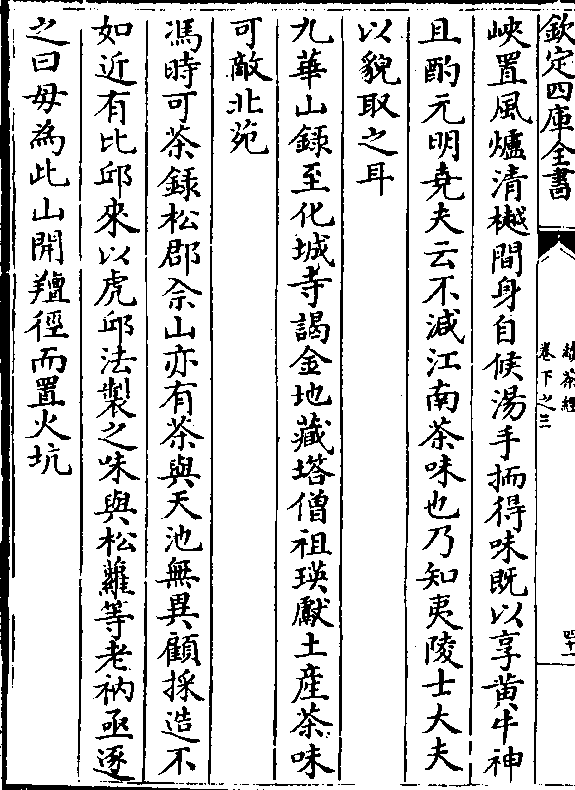 欽定四庫全書
續茶經
卷下之三
峽置風爐清樾間身自候湯手抐得味既以享黄牛神
且酌元明堯夫云不減江南茶味也乃知夷陵士大夫
以貌取之耳
九華山錄至化城寺謁金地藏塔僧祖瑛獻土産茶味
可敵北苑
馮時可茶錄松郡佘山亦有茶與天池無異顧採造不
如近有比邱來以虎邱法製之味與松蘿等老衲亟逐
之曰毋為此山開羶徑而置火坑